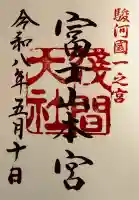 駿河國一之宮
富士山本宮
淺間
大社
令和八年五月十日